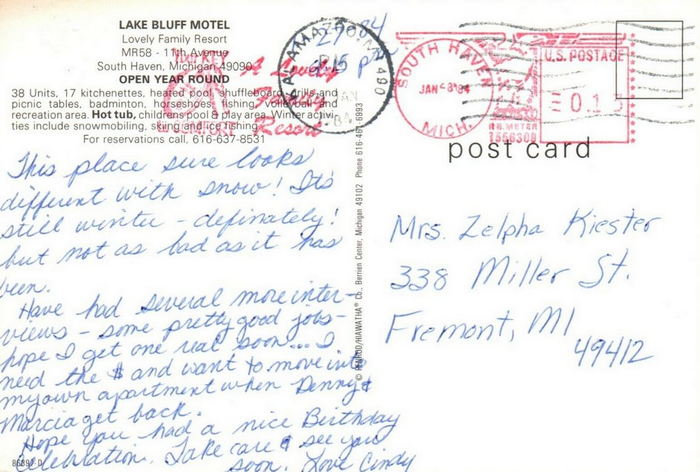 LAKE BLUFF MOTEL
Lovely Family Resort
MR58 - 11th Avenue
South Haven, Michigan 49090
OPEN YEAR ROUND
38 Units, 17 kitchenettes, heated pool, shuffleboard, grills and
picnic tables, badminton, horseshoes, fishing, volleyball and
recreation area. Hot tub, children's pool & play area. Winter activi-
ties include snowmobiling, skiing and ice fishing.
For reservations call, 616-637-8531
A Lovely
Family
Resort
KALAMAZOO, MI 490
SOUTH HAVEN
JAN 28'84
MICH.
U.S. POSTAGE
0.1
P.B. METER
1556309
post card
This place sure looks
different with snow! It's
still winter - definately!
but not as bad as it has
been.
Have had several more inter-
views - some pretty good jobs -
hope I get one real soon... I
need the $ and want to move into
my own apartment when Denny &
Marcia get back.
Hope you had a nice Birthday
Celebration. Take care & see you
soon. Love Cindy
86392-D
© PENROD/HIAWATHA Co., Berrien Center, Michigan 49102 Phone 616-461-6993
Mrs. Zelpha Kiester
338 Miller St.
Fremont, MI
49412